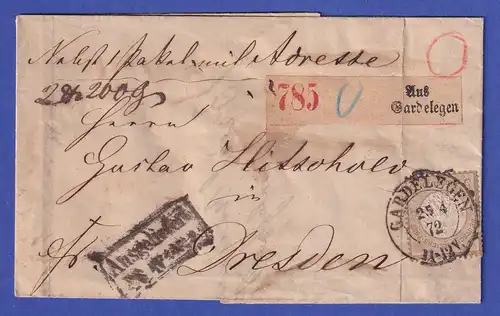 Nebst 1 Paket mit Adresse
2 200 g
785 0 Aus
Gardelegen
Herrn
Gustav
in
Fr. Dresden
Ausgeb.
GARDELEGEN
25 4
72